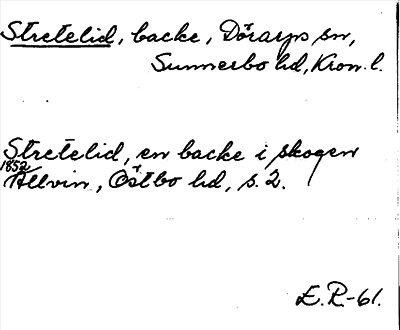 Stretelid, backe, Dörarps sn,
Sunnerbo hd, Kron. l.
Stretelid, en backe i skogen
1852
Allvin, Östbo hd, s. 2.
E. R.-61.